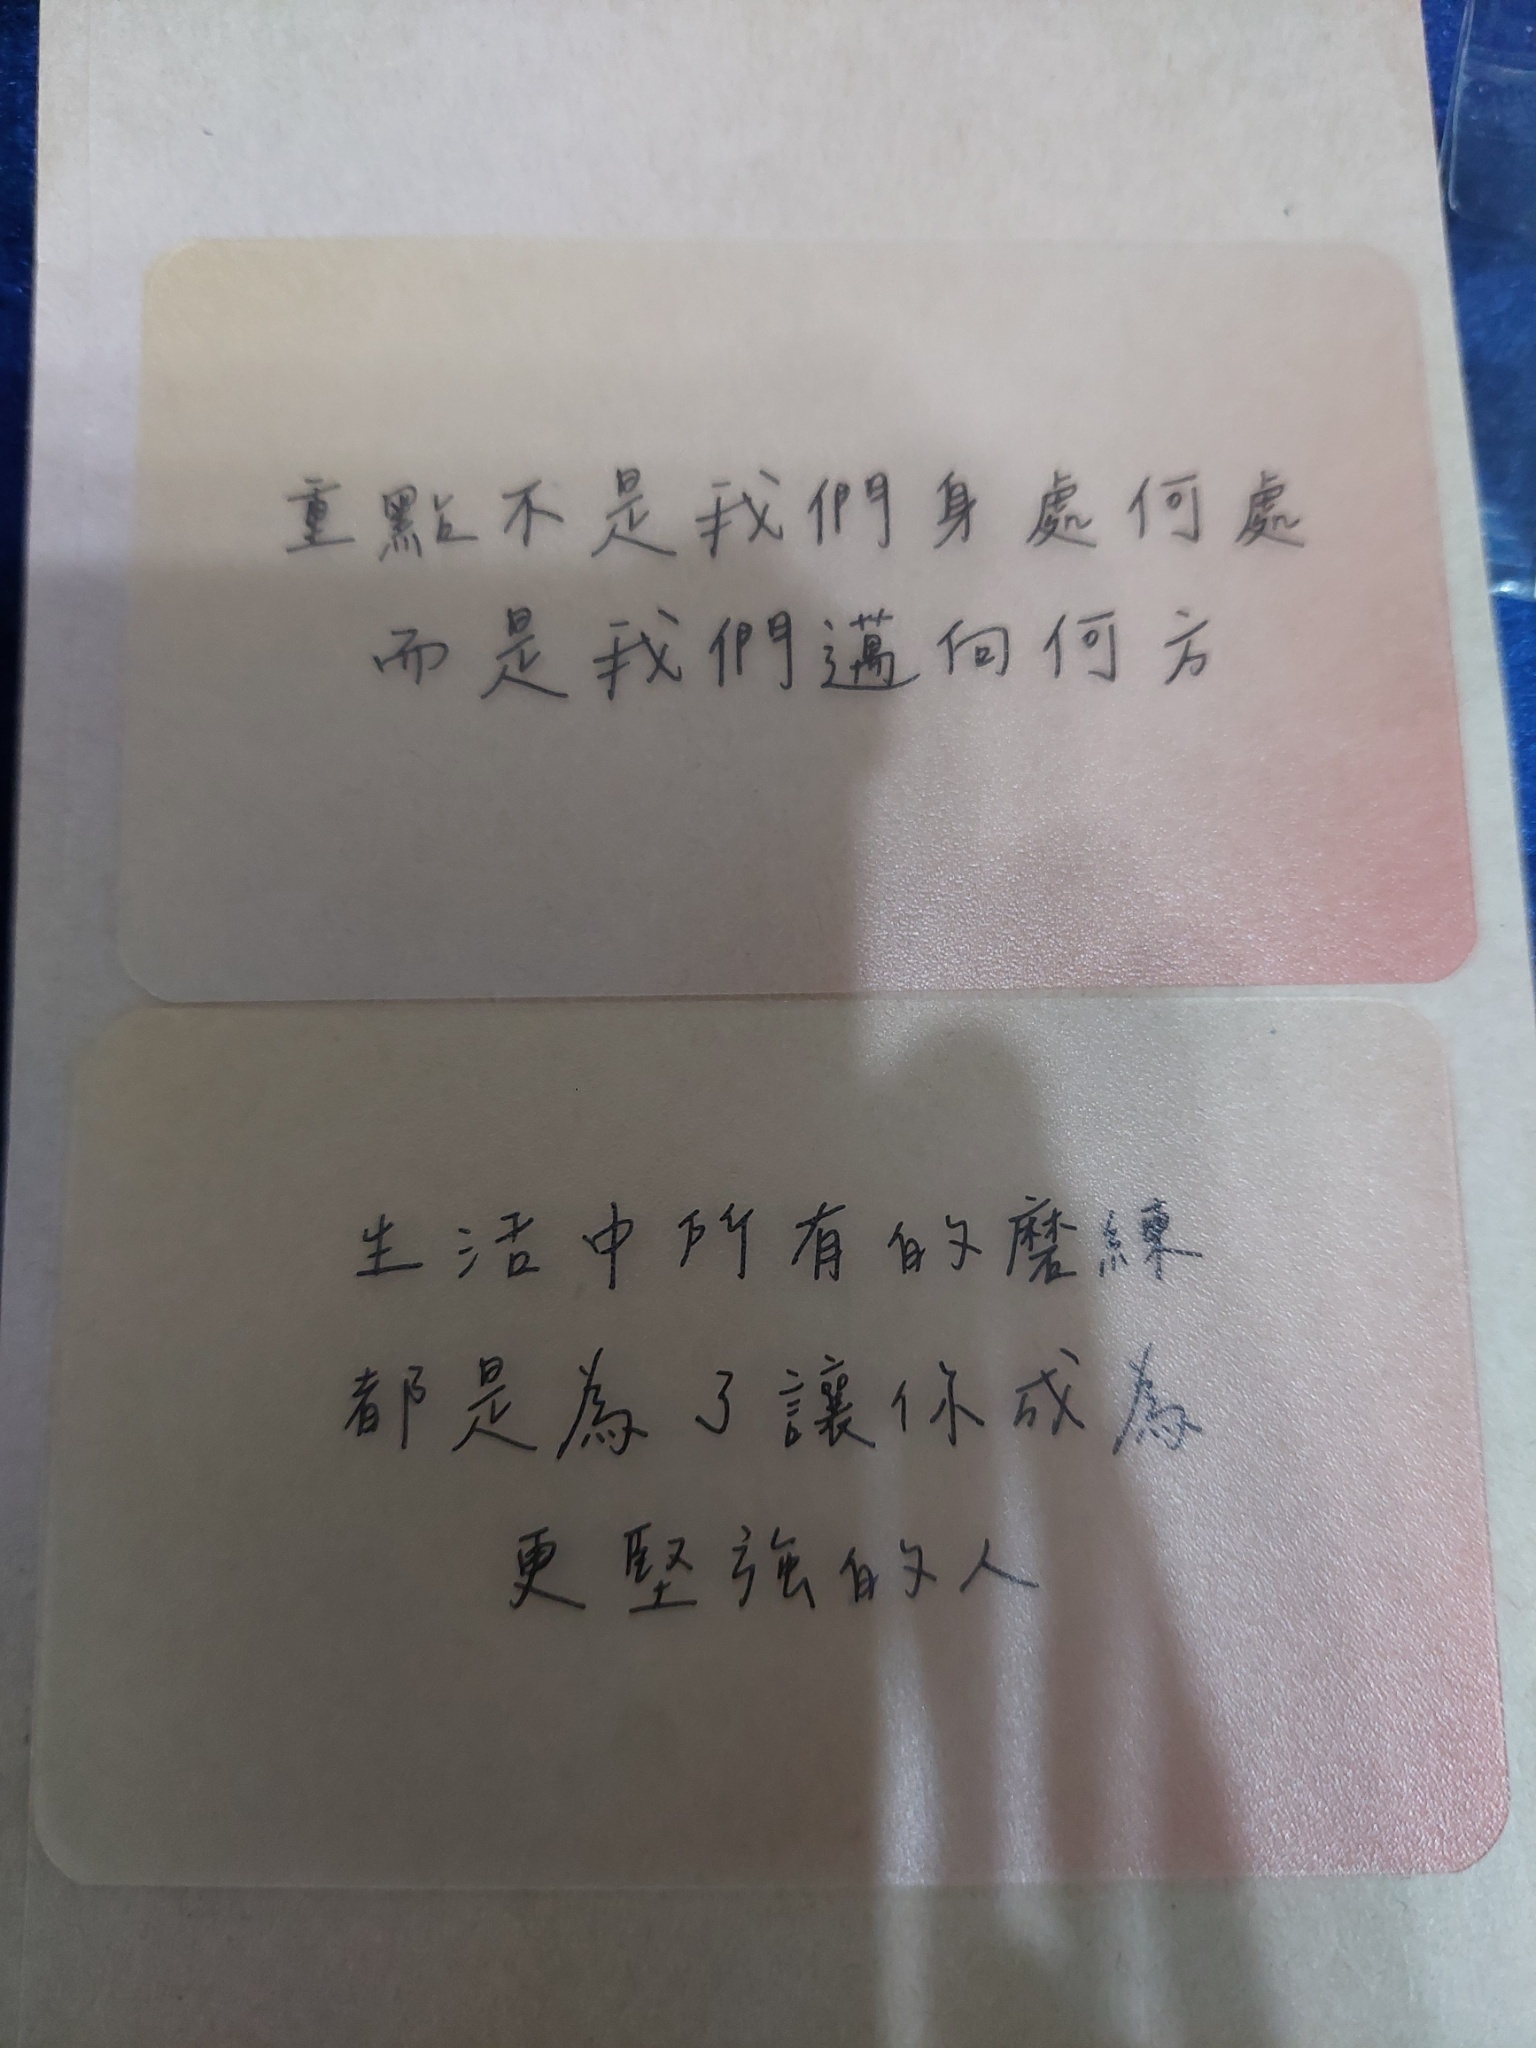 重點不是我們身處何處
而是我們邁向何方
生活中所有的磨練
都是為了讓你成為
更堅強的人